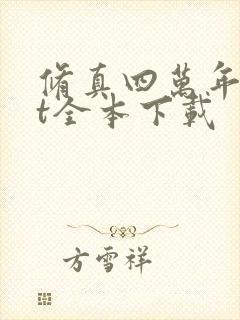 脩真四萬年
t全本下載
方雪祥